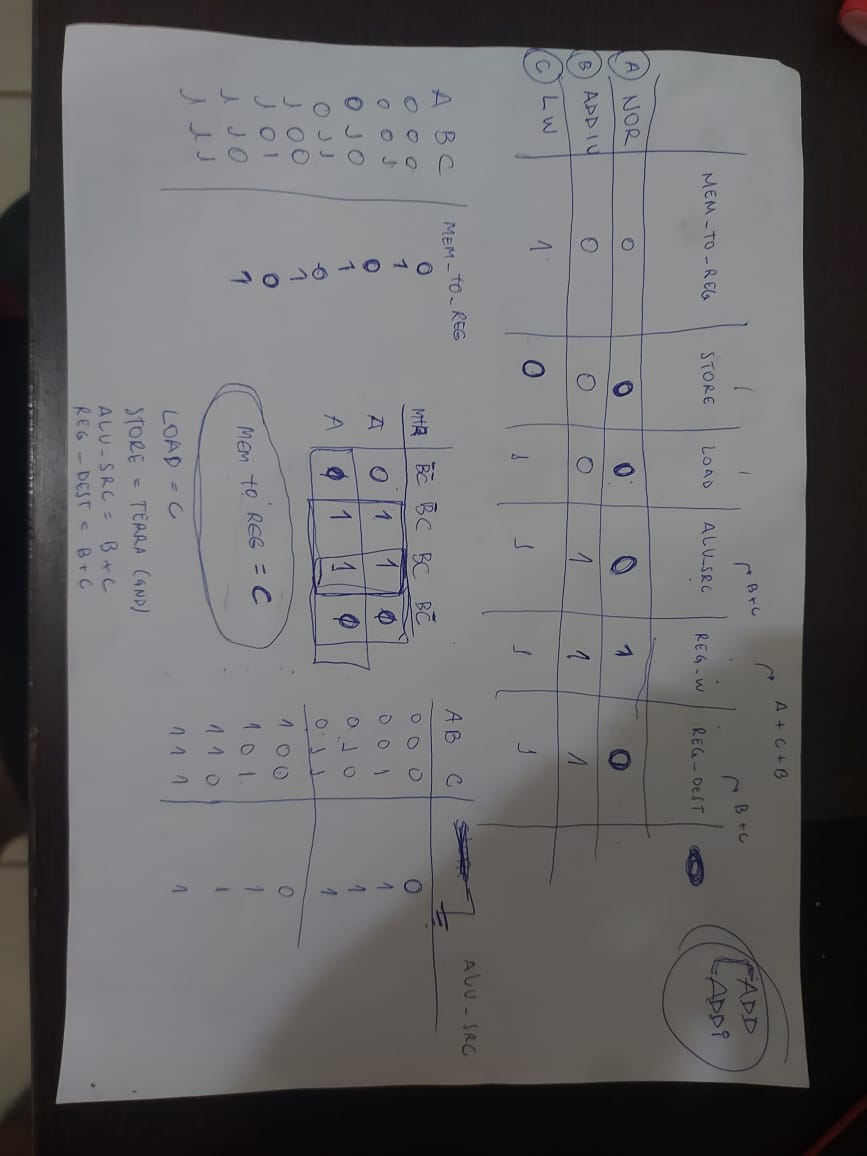 ADD
ADDi
A + C + B
B+C
B+C
MEM_TO_REG STORE LOAD ALU_SRC REG_W REG_DEST
A NOR 0 0 0 0 1 0
B ADDIU 0 0 0 1 1 1
C LW 1 0 1 1 1 1
A B C MEM_TO_REG
0 0 0 0
0 0 1 1
0 1 0 0
0 1 1 1
1 0 0 0
1 0 1 1
1 1 0 0
1 1 1 1
B̄C̄ B̄C BC BC̄
Ā 0 1 1 0
A 0 1 1 0
MEM TO REG = C
LOAD = C
STORE = TERRA (GND)
ALU-SRC = B+C
REG-DEST = B+C
A B C ALU-SRC
0 0 0 0
0 0 1 1
0 1 0 1
0 1 1 1
1 0 0 0
1 0 1 1
1 1 0 1
1 1 1 1